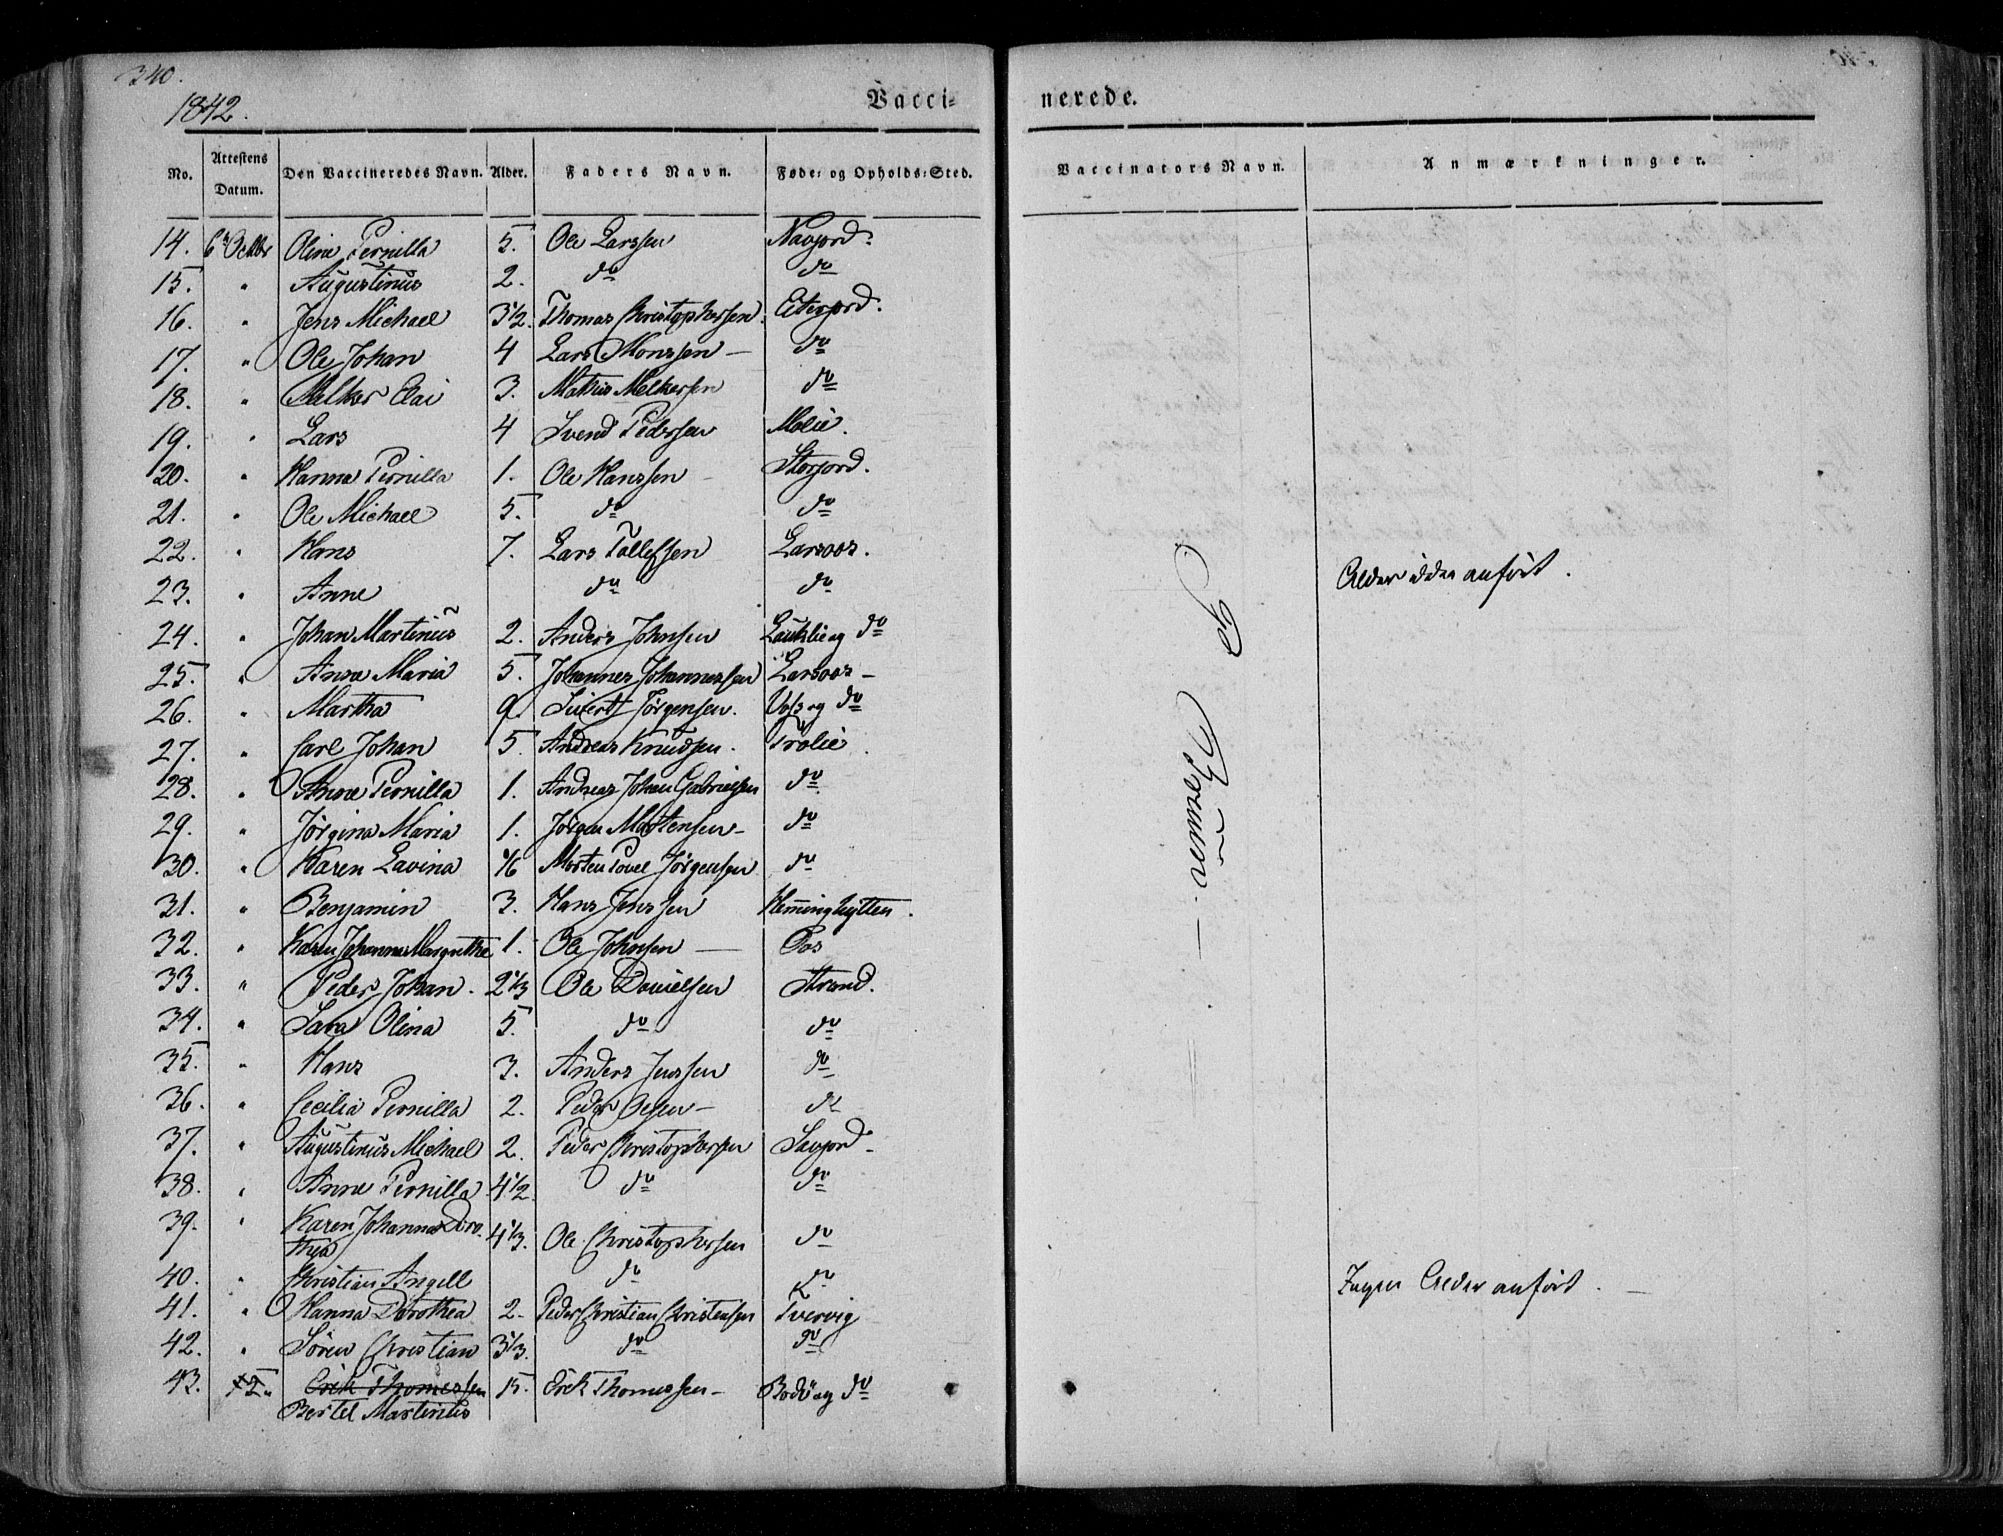 340.
1842.
Vacci- nerede.
No. Attestens Datum. Den Vaccineredes Navn. Alder. Faders Navn. Føde- og Opholds-Sted. Vaccinators Navn. Anmærkninger.
14. 6 Octbr Oline Pernilla 5. Ole Larssen Navjord.
15. " Augustinus 2. do do
16. " Jens Michael 3 1/2. Thomas Christophersen. Eiterjord.
17. " Ole Johan 4 Lars Monssen — do
18. " Melker Elai 3. Mathias Melkersen do
19. " Lars 4 Svend Pedersen Molie.
20. " Hanna Pernilla 1. Ole Hanssen Storjord.
21. " Ole Michael 5. do do
22. " Hans 7. Lars Tollefsen Larsoos.
23. " Anne do do Alder ikke anført.
24. " Johan Martinus 2. Anders Johnsen og do
25. " Anne Maria 5. Johannes Johannessen Larsoos —
26. " Martha 9. Sivert Jørgensen. og do
27. " Carl Johan 5. Andreas Knudsen. Trolie.
28. " Anne Pernilla 1. Andreas Johan Gabrielsen do
29. " Jørgina Maria 1. Jørgen Mortensen — do
30. " Karen Lavina Morten Povel Jørgensen do
31. " Benjamin 3. Hans Jenssen Hemminghytten.
32. " Karen Johanna Margrethe 1. Ole Johnsen — Oos
33. " Peder Johan. 2 1/3 Ole Danielsen Strand.
34. " Sara Olina 5. do do
35. " Hans 3. Anders Jenssen do
36. " Cecilia Pernilla 2. Peder Olsen — do
37. " Augustinus Michael 2. Peder Christophersen Savjord —
38. " Anne Pernilla 4 1/2. do do
39. " Karen Johanna Doro-
thea 4 1/3. Ole Christophersen do
40. " Christian Angell do do Ingen Alder anført. —
41. " Hanna Dorothea 2 — Peder Christian Christensen Tvervig
42. " Søren Christian 3 1/3. do do
43. Erik Thomessen 15. Erik Thomessen — Bodø og do
Bertel Martinus